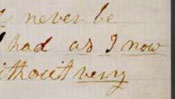 never be
had as I now
without very